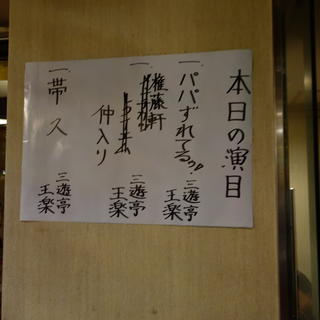 本日の演目
一、パパずれてるゥ! 三遊亭王楽
一、権藤軒 三遊亭王楽
仲入り
一、帯久 三遊亭王楽